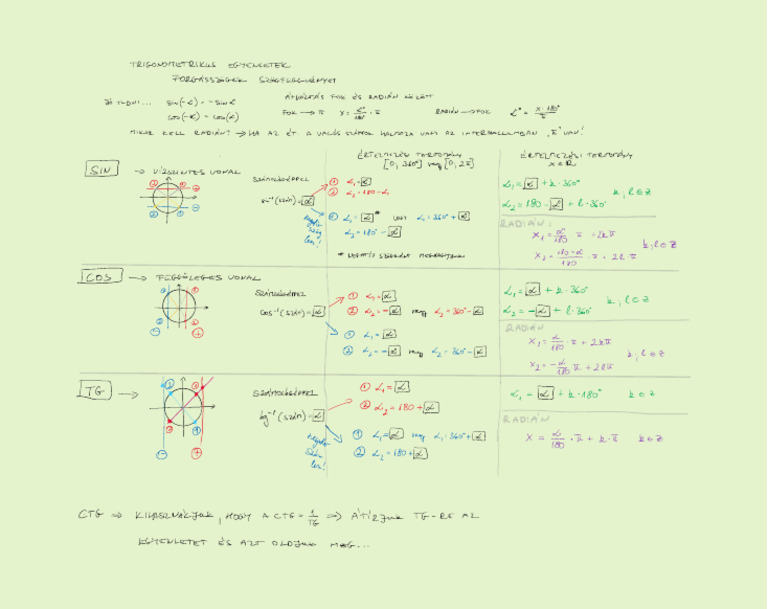 TRIGONOMETRIKUS EGYENLETEK
FORGÁSSZÖGEK SZÖGFÜGGVÉNYEI
JÓ TUDNI... sin(-α) = -sinα
cos(-α) = cos(α)
ÁTVÁLTÁS FOK ÉS RADIÁN KÖZÖTT
FOK → π x = α°/180 · π RADIÁN → FOK α° = x·180°/π
MIKOR KELL RADIÁN? → HA AZ ÉT. A VALÓS SZÁMOK HALMAZA VAGY AZ INTERVALLUMBAN „π" VAN!
ÉRTELMEZÉSI TARTOMÁNY
[0, 360°] vagy [0, 2π]
ÉRTELMEZÉSI TARTOMÁNY
x ∈ R
SIN → VÍZSZINTES VONAL
SZÁMOLÓGÉPPEL
sin⁻¹(szám) = α
① α₁ = α
② α₂ = 180 - α₁
negatív szög lesz!
① α₁ = α * vagy α₁ = 360° + α
α₂ = 180° - α
* NEGATÍV SZÖGKÉNT MEGHAGYJUK
α₁ = α + k·360°
α₂ = 180 - α + l·360°
k, l ∈ Z
RADIÁN:
x₁ = α/180 · π + 2kπ
x₂ = 180-α/180 · π + 2lπ
k, l ∈ Z
COS → FÜGGŐLEGES VONAL
SZÁMOLÓGÉPPEL
cos⁻¹(szám) = α
① α₁ = α
② α₂ = -α vagy α₂ = 360° - α
① α₁ = α
② α₂ = -α vagy α₂ = 360° - α
α₁ = α + k·360°
α₂ = -α + l·360°
k, l ∈ Z
RADIÁN
x₁ = α/180 · π + 2kπ
x₂ = -α/180 · π + 2lπ
k, l ∈ Z
TG →
SZÁMOLÓGÉPPEL
tg⁻¹(szám) = α
① α₁ = α
② α₂ = 180 + α
negatív szám lesz!
① α₁ = α vagy α₁ = 360° + α
② α₂ = 180 + α
α₁ = α + k·180° k ∈ Z
RADIÁN
x = α/180 · π + k·π k ∈ Z
CTG ⇒ KIHASZNÁLJUK, HOGY A CTG = 1/TG ⇒ ÁTÍRJUK TG-RE AZ
EGYENLETET ÉS AZT OLDJUK MEG...